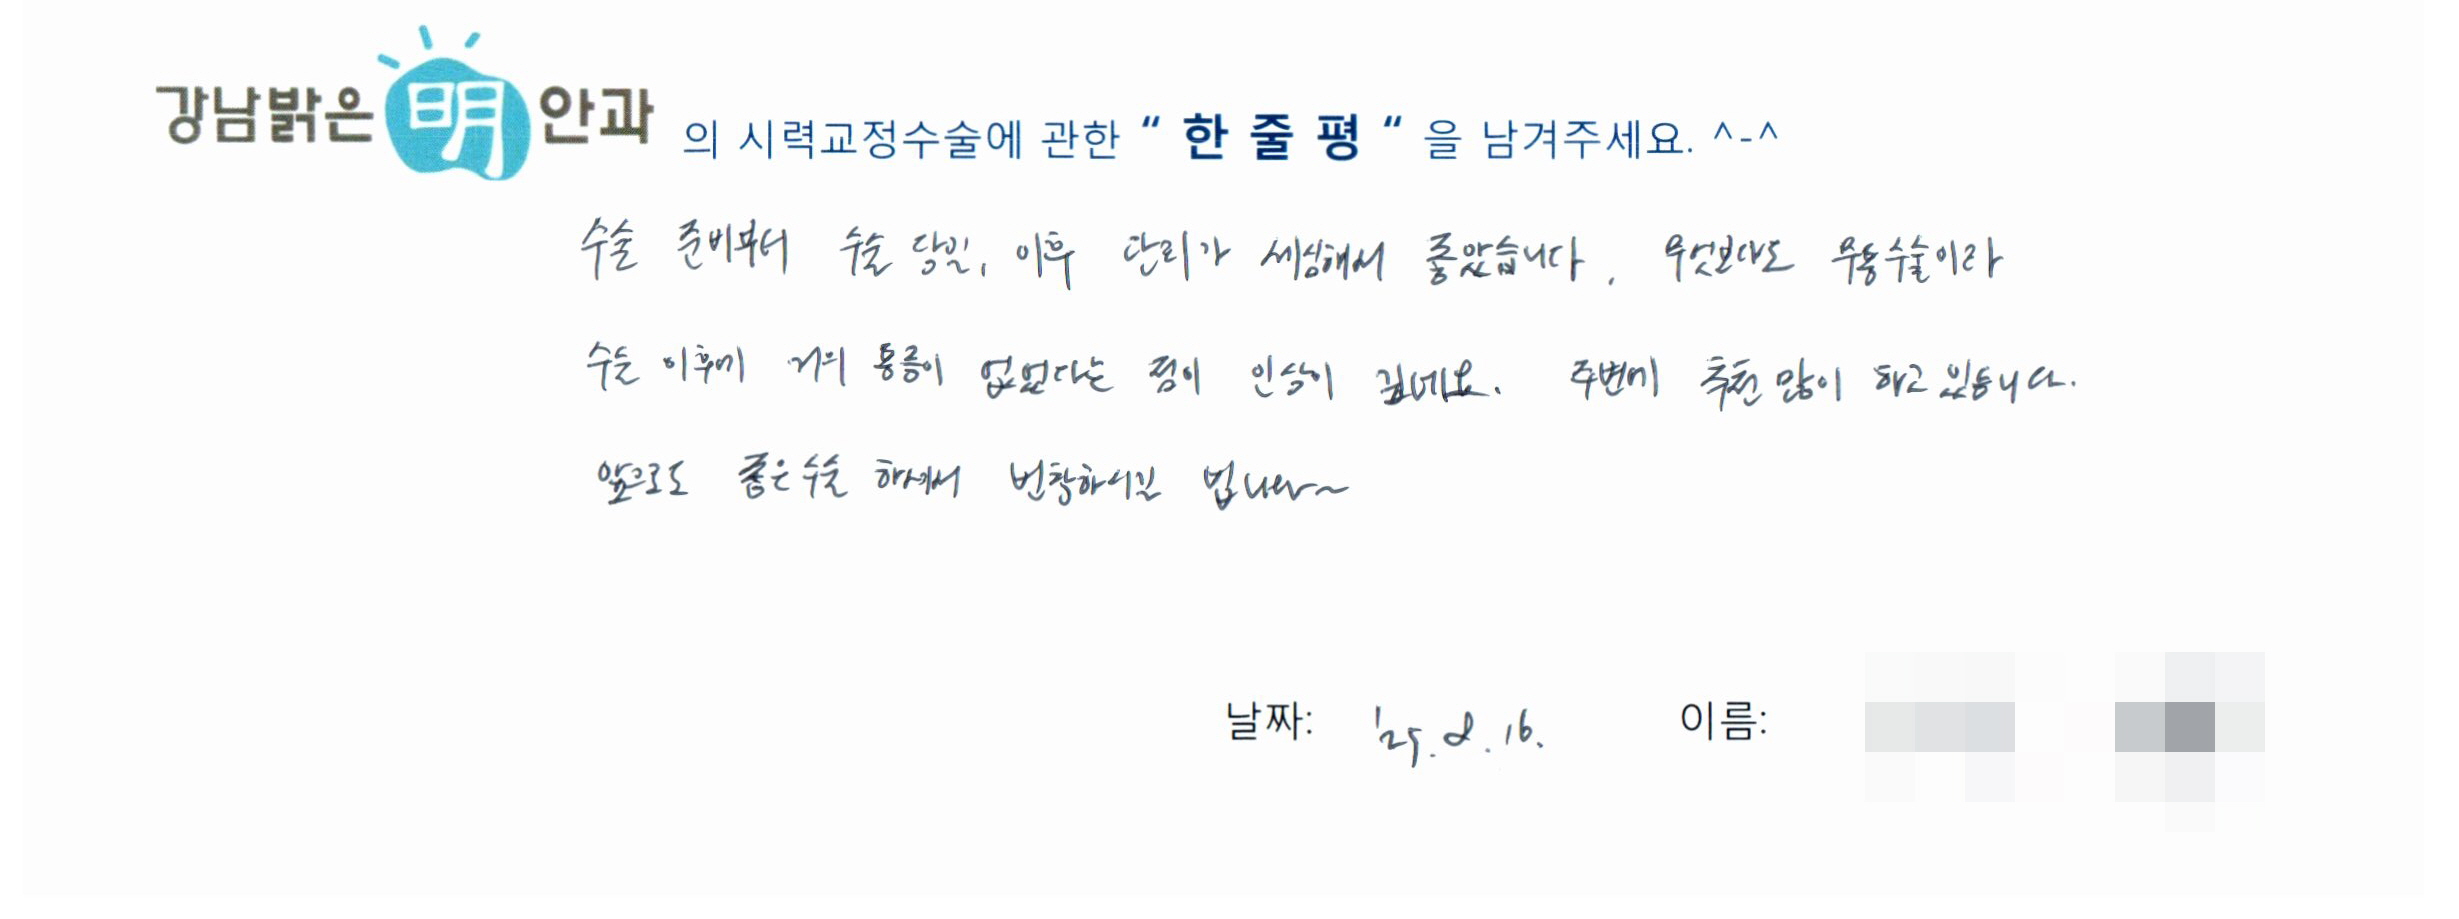 강남밝은 明 안과 의 시력교정수술에 관한 “ 한 줄 평 “ 을 남겨주세요. ^-^
수술 준비부터 수술 당일, 이후 관리가 세심해서 좋았습니다. 무엇보다도 무통수술이라
수술 이후에 거의 통증이 없었다는 점이 인상이 깊네요. 주변에 추천 많이 하고 있습니다.
앞으로도 좋은 수술 하셔서 번창하시길 빕니다~
날짜: '25. 8. 16. 이름: